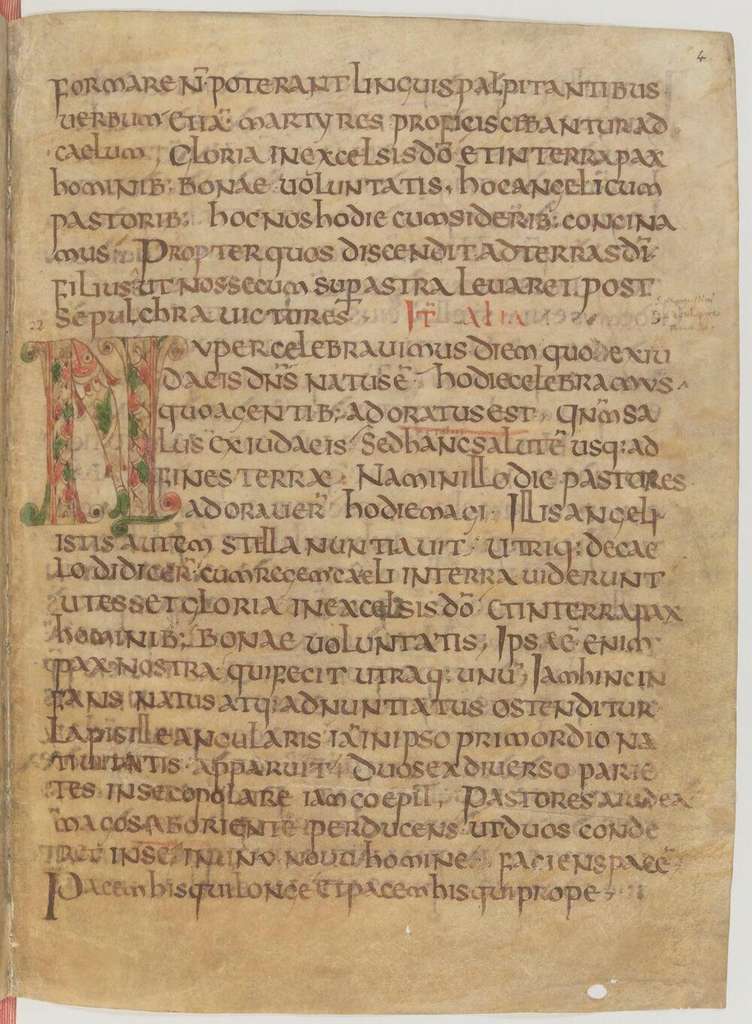 4
formare n̄ poterant linguis palpitantibus
uerbum etiā martyres proficiscebantur ad
caelum, Gloria in excelsis dō et in terra pax
hominib; bonae uoluntatis, hoc angelicum
pastorib; hoc nos hodie cum siderib; concina
mus. Propter quos discendit ad terras dī
filius ut nos secum sup̄ astra leuaret. post
sepulchra uictures. It̄ alia
Nuper celebrauimus diem quo ex iu
daeis dn̄s natus ē. hodie celebramus
quo a gentib; adoratus est. Qn̄m sa
lus ex iudaeis. Sed hanc salutē usq; ad
fines terrae. Nam in illo die pastores
adorauer̄ hodie magi. Illis angeli
istis autem stella nuntiauit. Utriq; de cae
lo didicer̄. cum regem caeli in terra uiderunt
ut esset gloria in excelsis dō et in terra pax
hominib; bonae uoluntatis, Ipsa ē enim
pax nostra qui fecit utraq; unū, Iam hinc in
fans natus atq; adnuntiatus ostenditur
lapis ille angularis iā in ipso primordio na
tiuitatis apparuit. Duos ex diuerso parie
tes in se copolare iam coepit, Pastores a iudea
magos ab oriente perducens. ut duos conde
ret in se in uno nouū homine. faciens pacē
Pacem his qui longe et pacem his qui prope